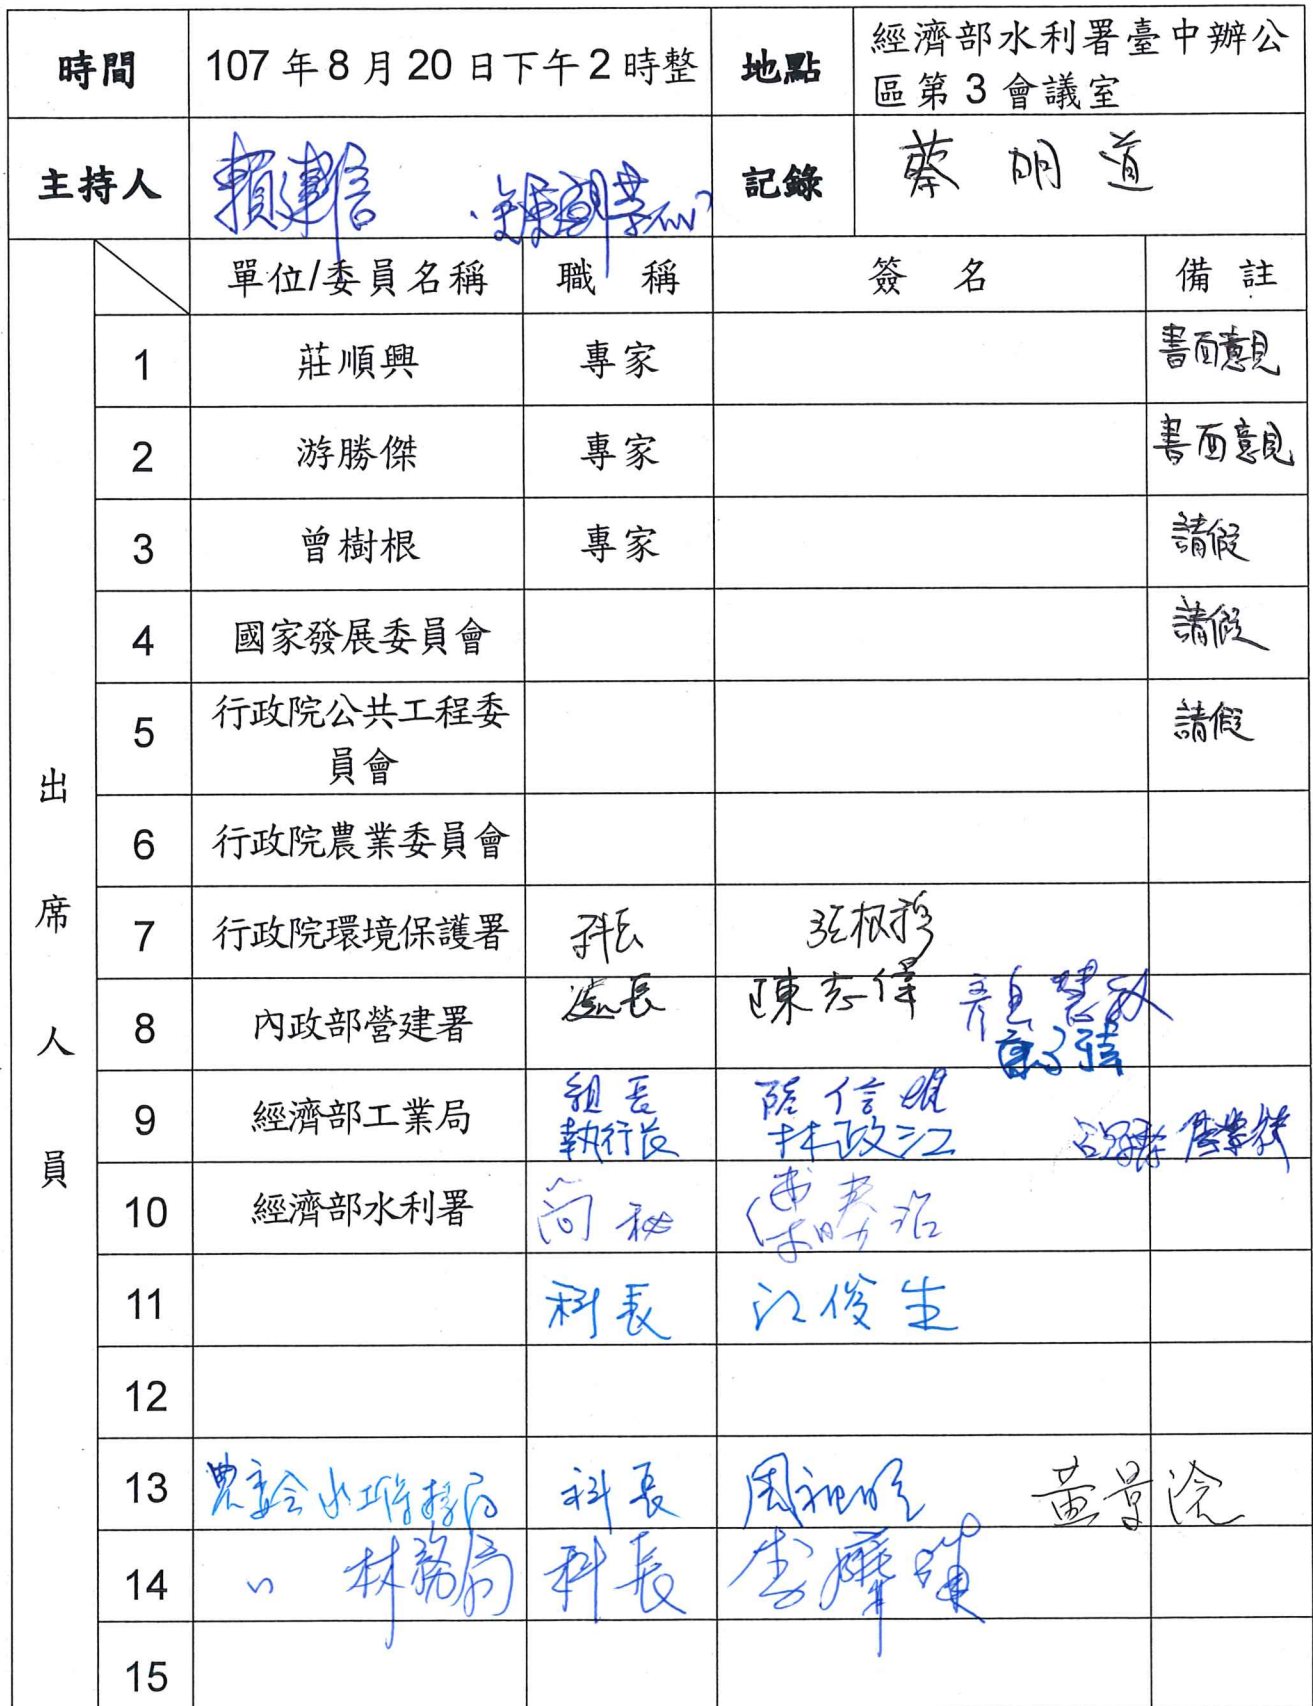 時間 107年8月20日下午2時整 地點 經濟部水利署臺中辦公
區第3會議室
主持人 賴建信 記錄 蔡明道
出席人員
單位/委員名稱 職稱 簽名 備註
1 莊順興 專家 書面意見
2 游勝傑 專家 書面意見
3 曾樹根 專家 請假
4 國家發展委員會 請假
5 行政院公共工程委
員會 請假
6 行政院農業委員會
7 行政院環境保護署 科長 張根穆
8 內政部營建署 處長 陳志偉
9 經濟部工業局 組長
執行長 林政江
10 經濟部水利署 簡秘
11 科長 江俊生
12
13 農委會水土保持局 科長 黃景
14 〃 林務局 科長
15